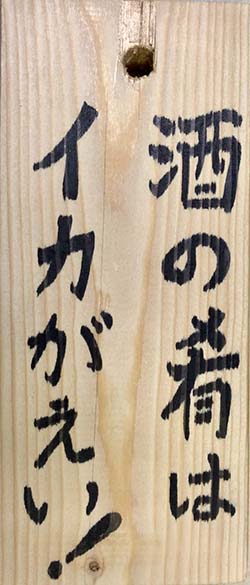 酒の肴は
イカがえい!